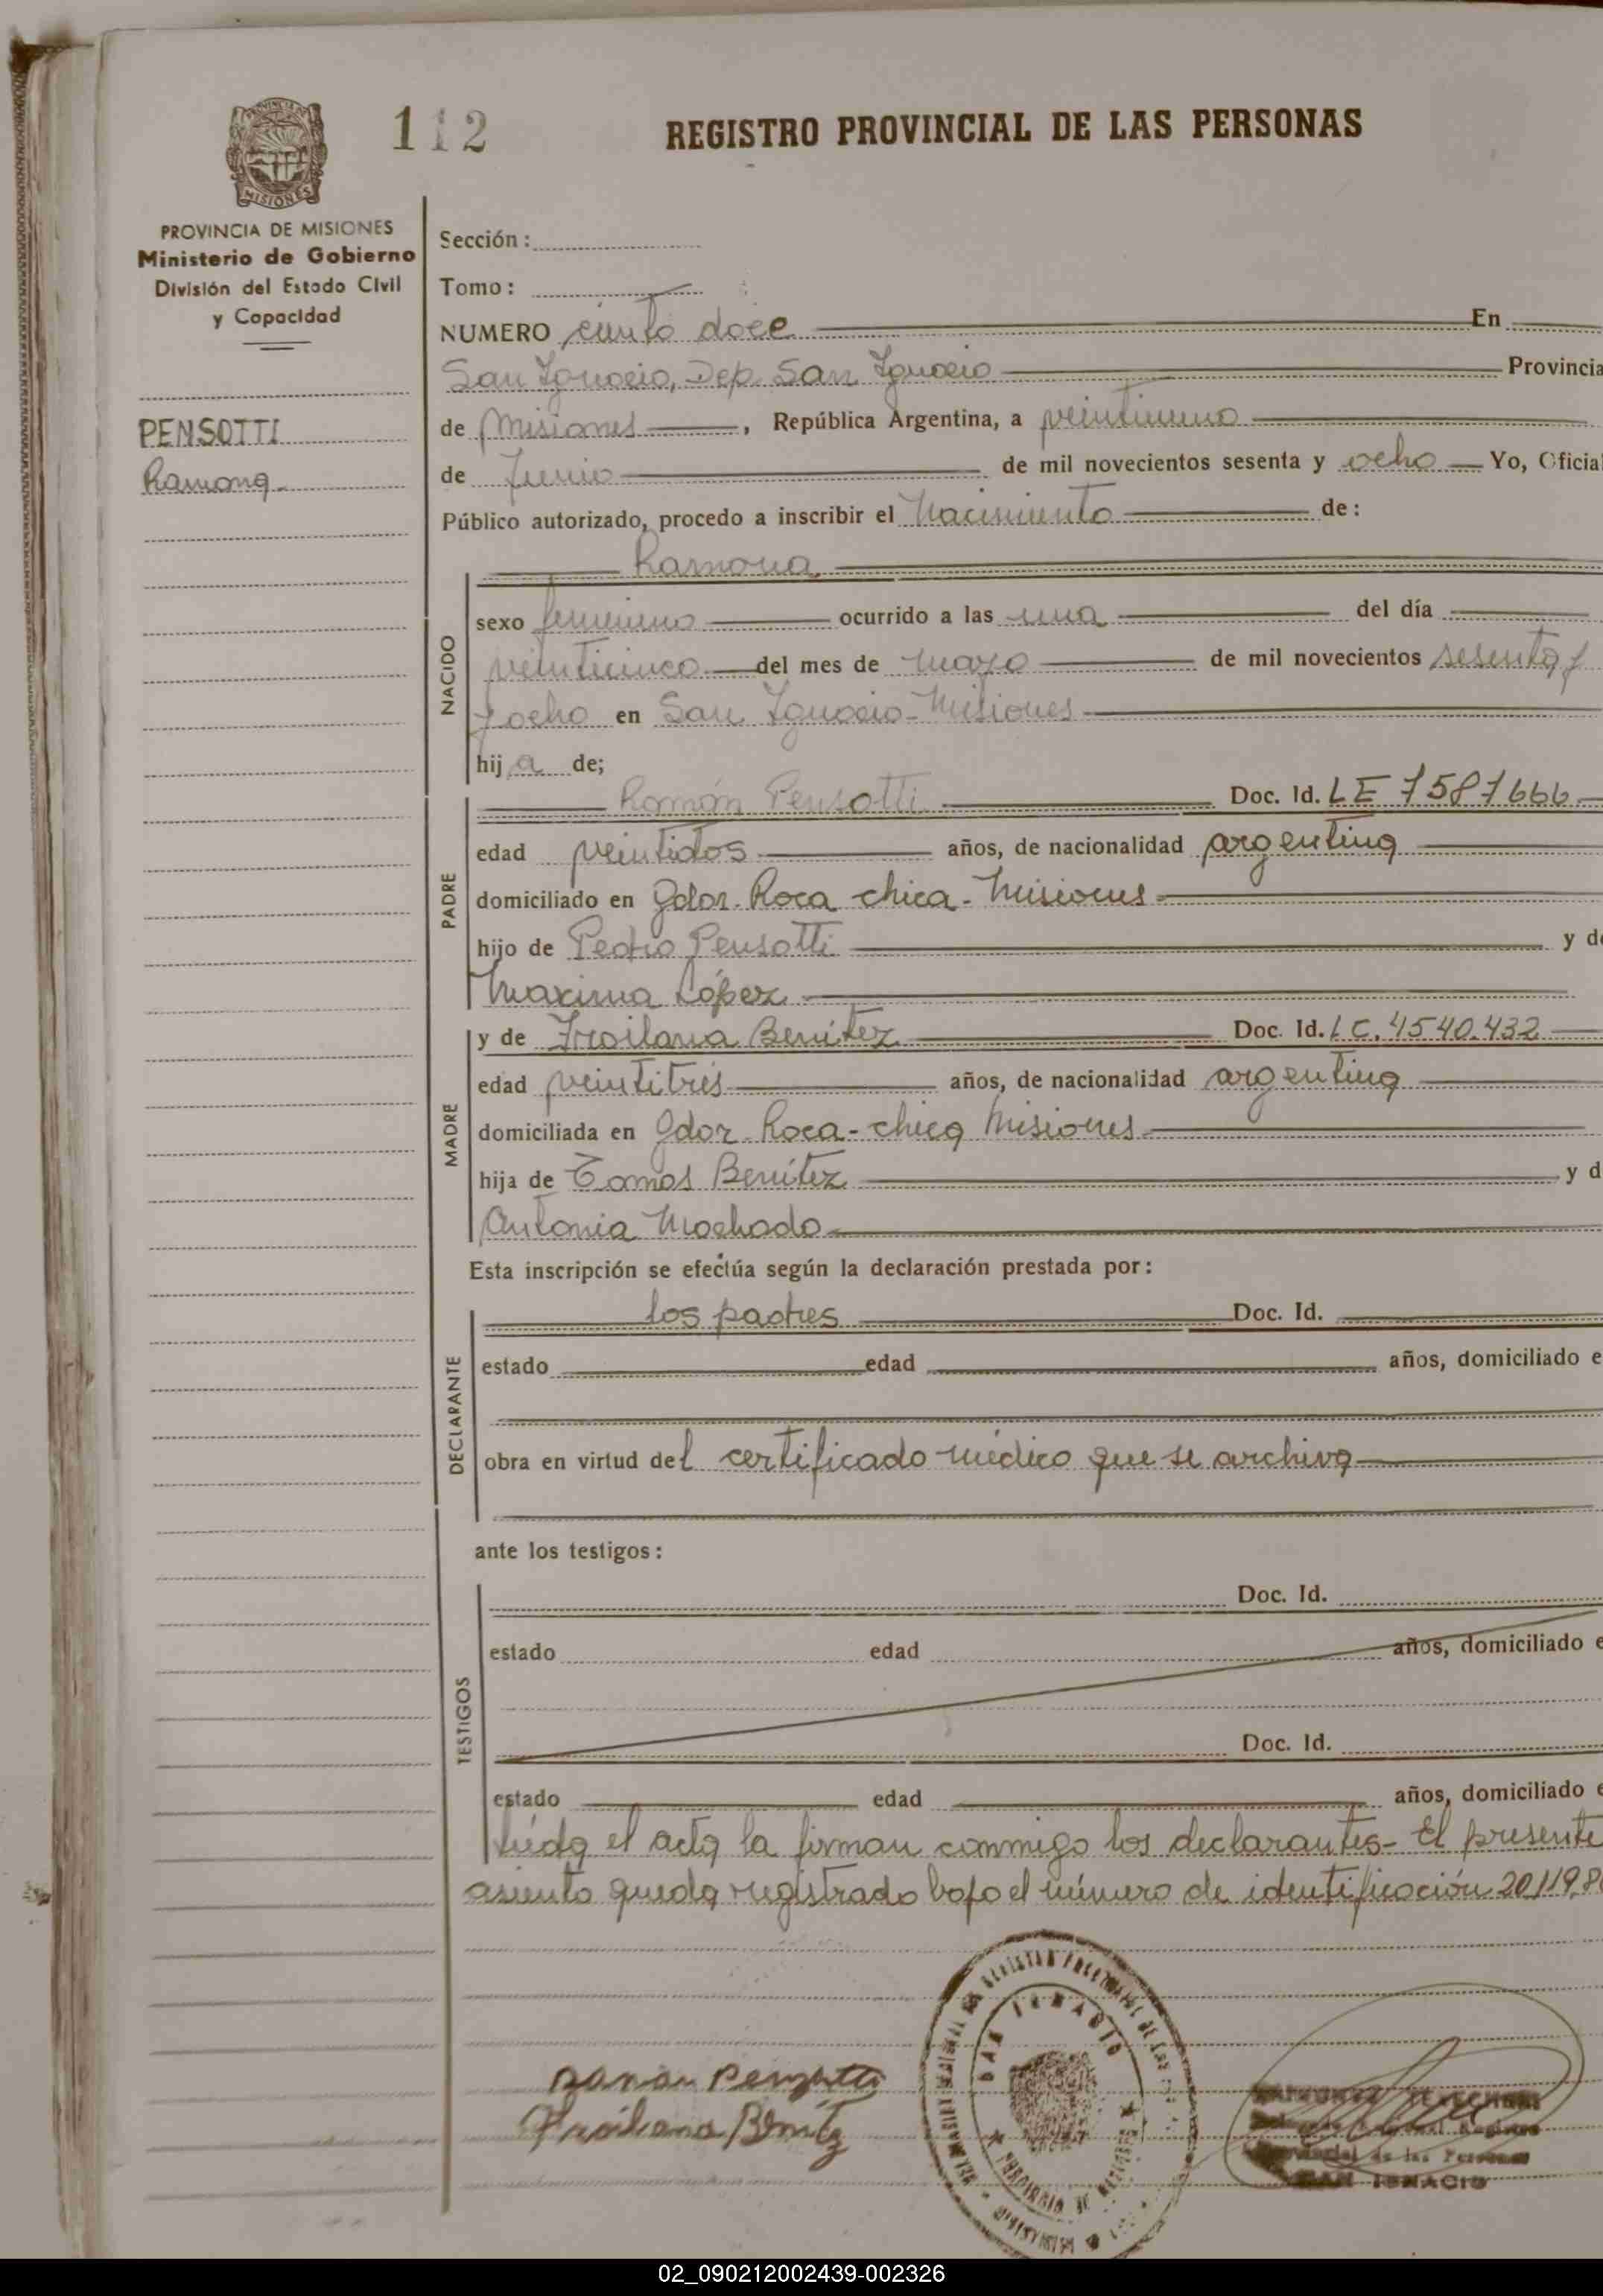 112
REGISTRO PROVINCIAL DE LAS PERSONAS
PROVINCIA DE MISIONES
MISIONES
PROVINCIA DE MISIONES
Ministerio de Gobierno
División del Estado Civil
y Capacidad
PENSOTTI
Ramona
Sección:
Tomo:
NUMERO ciento doce En
San Ignacio, Dep. San Ignacio Provincia
de Misiones, República Argentina, a veintiuno
de Junio de mil novecientos sesenta y ocho Yo, Oficial
Público autorizado, procedo a inscribir el Nacimiento de:
NACIDO
Ramona
sexo femenino ocurrido a las una del día
veinticinco del mes de mayo de mil novecientos sesenta y
y ocho en San Ignacio - Misiones
hij a de;
PADRE
Ramón Pensotti Doc. Id. LE 7587666
edad veintidos años, de nacionalidad argentina
domiciliado en Gdor. Roca chica - Misiones
hijo de Pedro Pensotti y de
Maxima López
MADRE
y de Froilana Benitez Doc. Id. LC. 4540.432
edad veintitrés años, de nacionalidad argentina
domiciliada en Gdor. Roca - chica Misiones
hija de Tomas Benítez y d
Antonia Machado
Esta inscripción se efectúa según la declaración prestada por:
DECLARANTE
los padres Doc. Id.
estado edad años, domiciliado e
obra en virtud del certificado médico que se archiva
ante los testigos:
TESTIGOS
Doc. Id.
estado edad años, domiciliado e
Doc. Id.
estado edad años, domiciliado e
Leída el acta la firman conmigo los declarantes - El presente
asiento queda registrado bajo el número de identificación 20.119.8
SAN IGNACIO
Ramon Pensotti
Froilana Benitez
Provincial de las Personas
SAN IGNACIO
02_090212002439-002326